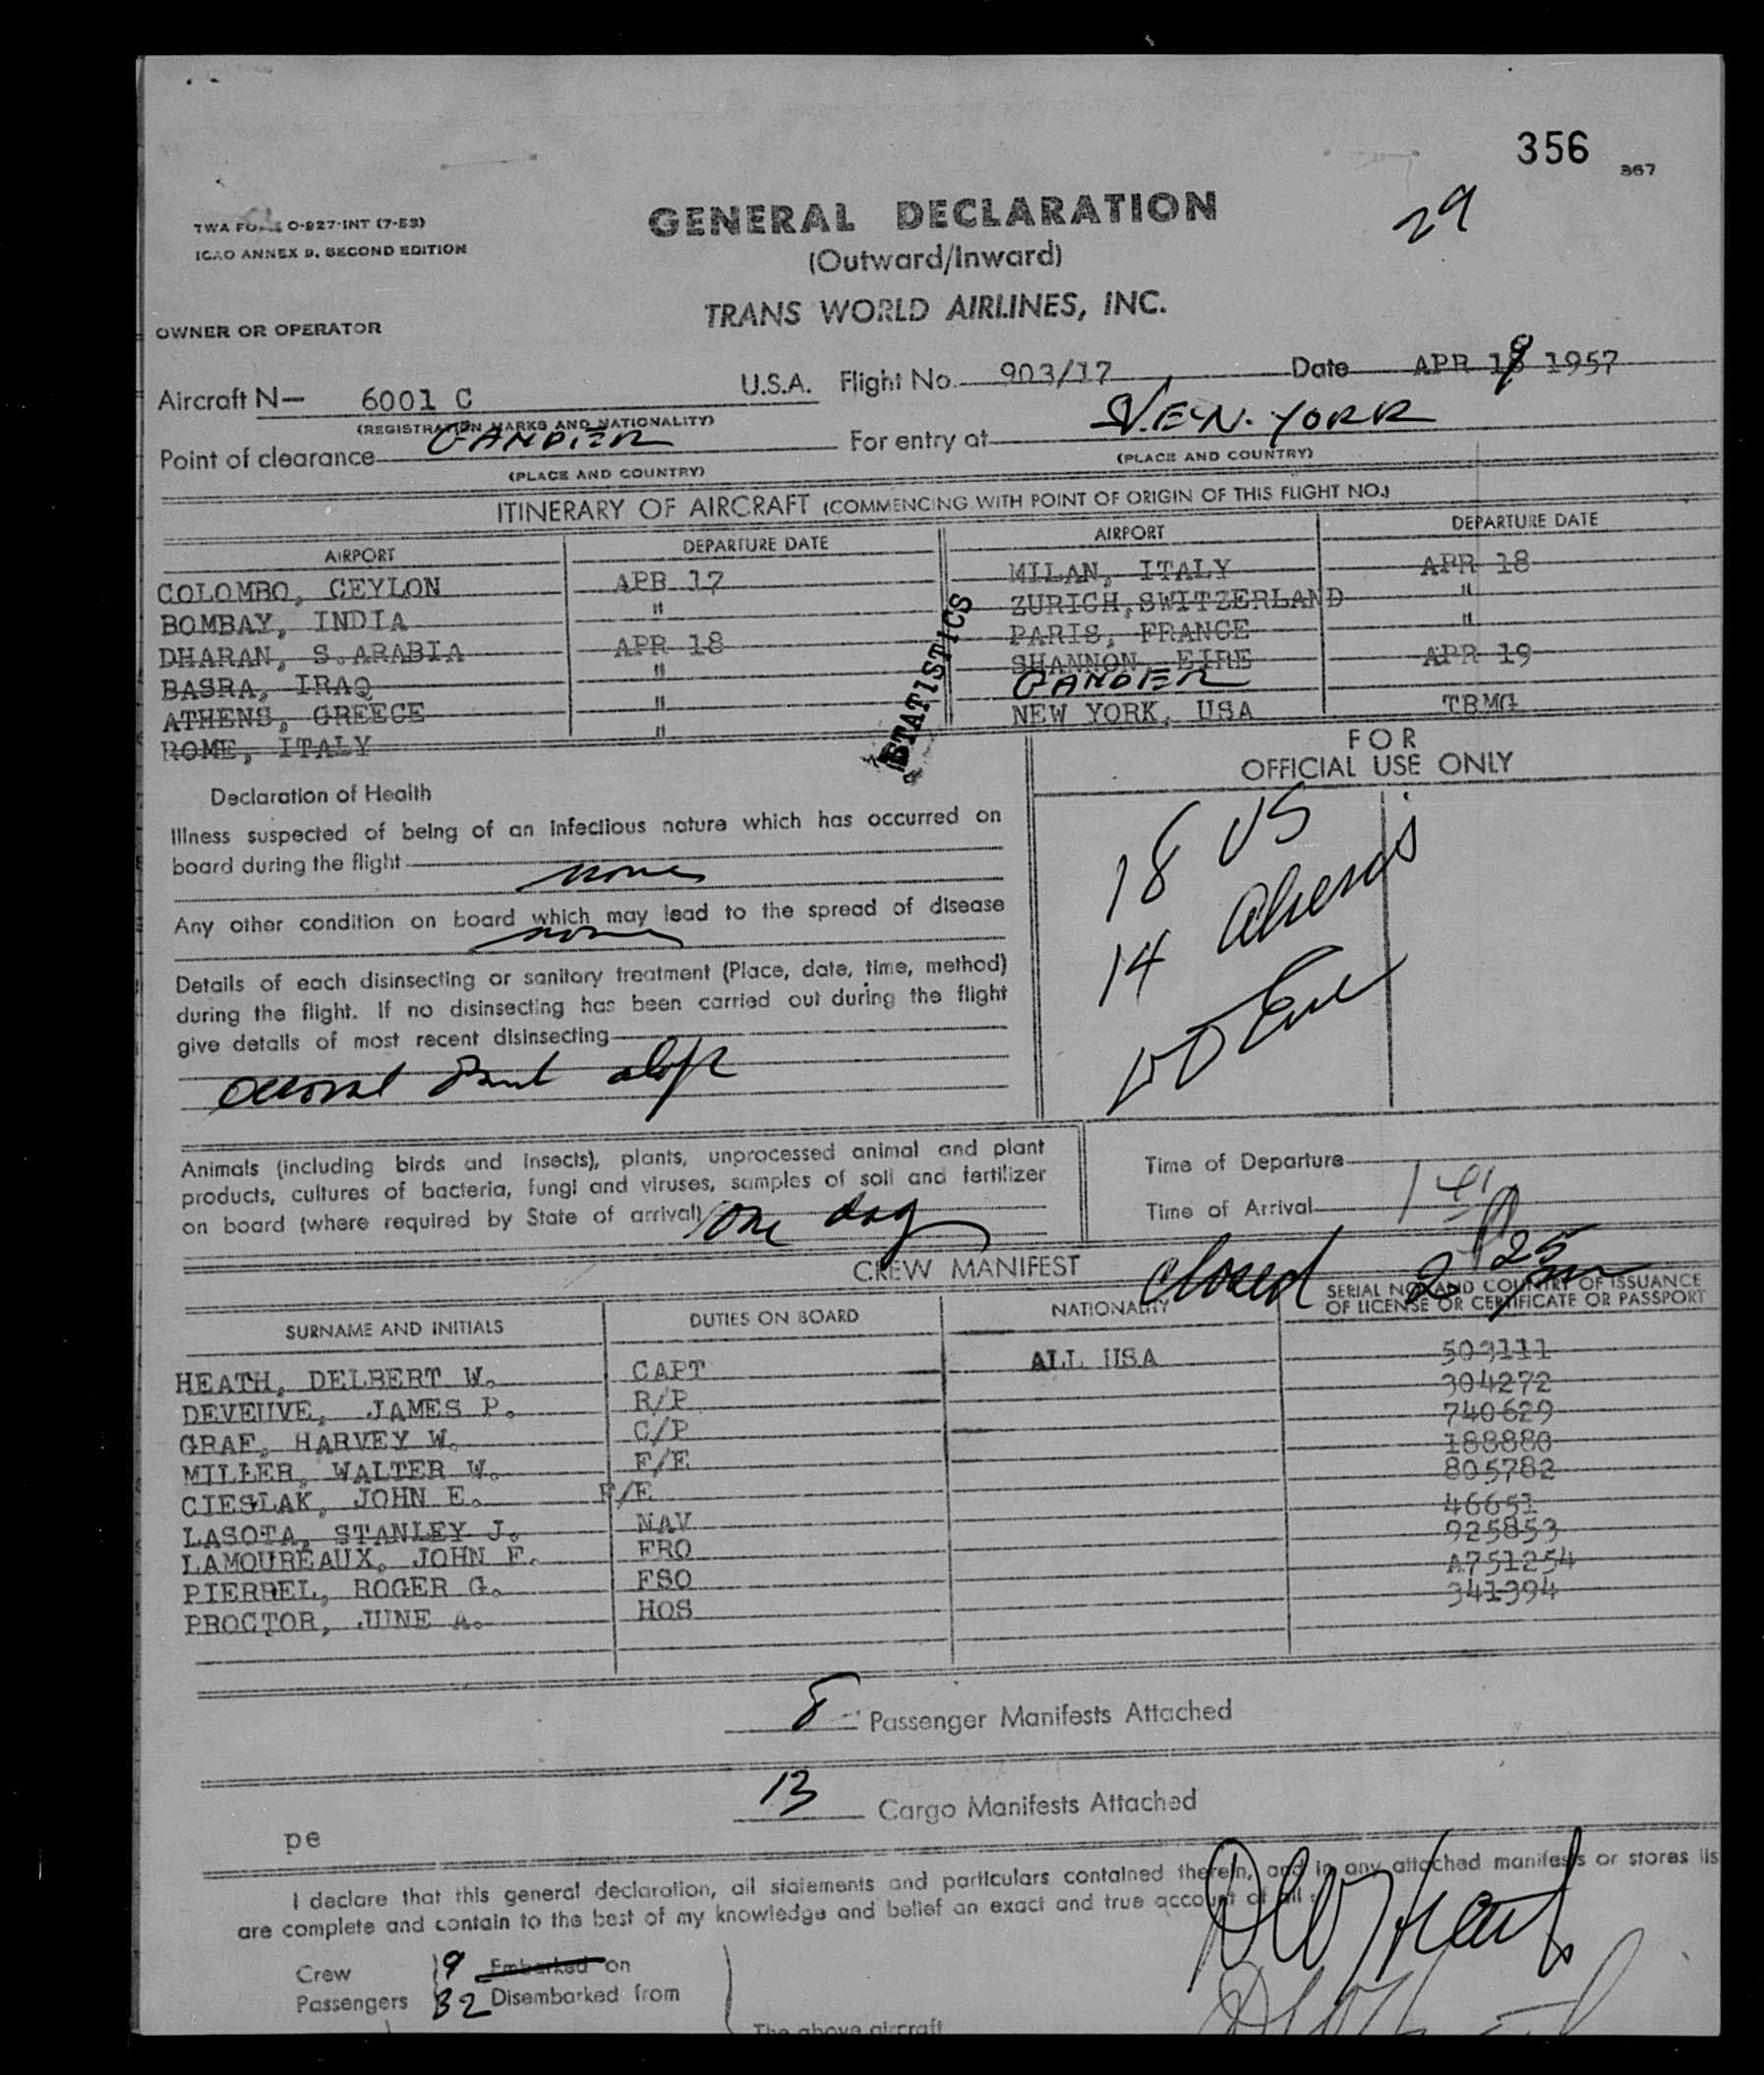 356
367
29
TWA FORM O-927-INT (7-53)
ICAO ANNEX 9, SECOND EDITION
GENERAL DECLARATION
(Outward/Inward)
TRANS WORLD AIRLINES, INC.
OWNER OR OPERATOR
Aircraft N- 6001 C U.S.A. Flight No. 903/17 Date APR 19 1957
(REGISTRATION MARKS AND NATIONALITY)
Point of clearance GANDER For entry at NEW YORK
(PLACE AND COUNTRY) (PLACE AND COUNTRY)
ITINERARY OF AIRCRAFT (COMMENCING WITH POINT OF ORIGIN OF THIS FLIGHT NO.)
AIRPORT DEPARTURE DATE AIRPORT DEPARTURE DATE
COLOMBO, CEYLON APR 17 MILAN, ITALY APR 18
BOMBAY, INDIA " ZURICH, SWITZERLAND "
DHARAN, S.ARABIA APR 18 PARIS, FRANCE "
BASRA, IRAQ " SHANNON, EIRE APR 19
GANDER
ATHENS, GREECE " NEW YORK, USA TRMG
ROME, ITALY "
STATISTICS
FOR
OFFICIAL USE ONLY
Declaration of Health
Illness suspected of being of an infectious nature which has occurred on
board during the flight none
Any other condition on board which may lead to the spread of disease
none
Details of each disinsecting or sanitary treatment (Place, date, time, method)
during the flight. If no disinsecting has been carried out during the flight
give details of most recent disinsecting
18 US
14 Aliens
Animals (including birds and insects), plants, unprocessed animal and plant
products, cultures of bacteria, fungi and viruses, samples of soil and fertilizer
on board (where required by State of arrival) one dog
Time of Departure
Time of Arrival
closed 2 25
CREW MANIFEST
SURNAME AND INITIALS DUTIES ON BOARD NATIONALITY SERIAL NO. AND COUNTRY OF ISSUANCE
OF LICENSE OR CERTIFICATE OR PASSPORT
HEATH, DELBERT W. CAPT ALL USA 503111
DEVEUVE, JAMES P. R/P 304272
GRAF, HARVEY W. C/P 740629
MILLER, WALTER W. F/E 188880
CIESLAK, JOHN E. F/E 805782
LASOTA, STANLEY J. NAV 46651
LAMOUREAUX, JOHN F. FRO 925853
PIERREL, ROGER G. FSO A751254
PROCTOR, JUNE A. HOS 341394
8 Passenger Manifests Attached
13 Cargo Manifests Attached
pe
I declare that this general declaration, all statements and particulars contained therein, and in any attached manifests or stores lis
are complete and contain to the best of my knowledge and belief an exact and true account of all
Crew 9 Embarked on
Passengers 32 Disembarked from
The above aircraft